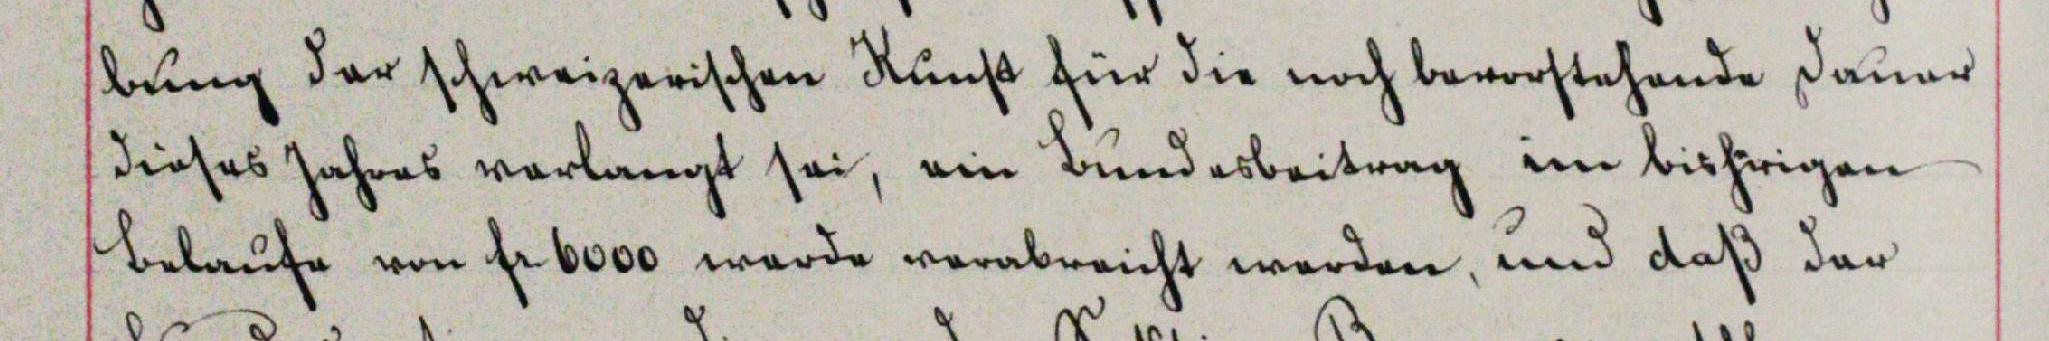 bung der schweizerischen Kunst für die noch bevorstehende Dauer
dieses Jahres verlangt sei, ein Bundesbeitrag im bisherigen
Belaufe von fr. 6000 werde verabreicht werden, und daß der